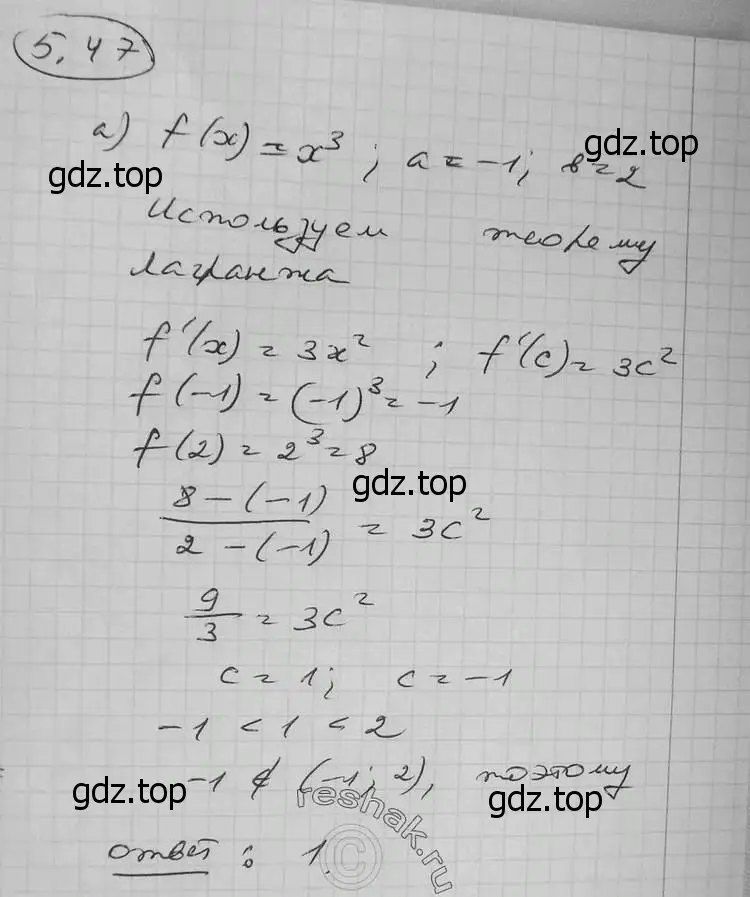 5.47
а) f(x) = x³; a = -1; в = 2
gdz.top
gdz.top
Используем теорему
Лагранжа
f'(x) = 3x²; f'(c) = 3c²
f(-1) = (-1)³ = -1
f(2) = 2³ = 8
gdz.top
8-(-1) / 2-(-1) = 3c²
9/3 = 3c²
c = 1; c = -1
-1 < 1 < 2
-1 ∉ (-1; 2), поэтому
gdz.top
gdz.top
reshak.ru
©
ответ: 1.